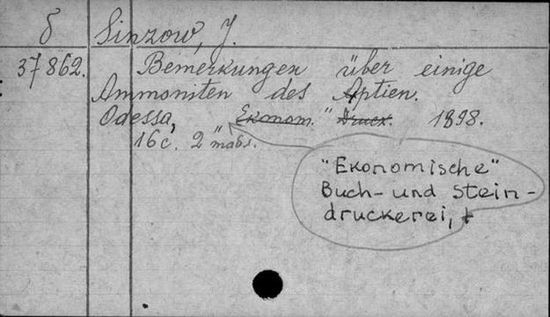 б Sinzow, J.
37862. Bemerkungen über einige
Ammoniten des Aptien.
Odessa, "Ekonom." Druck. 1898.
16 с. 2 табл.
"Ekonomische"
Buch- und Stein-
druckerei,